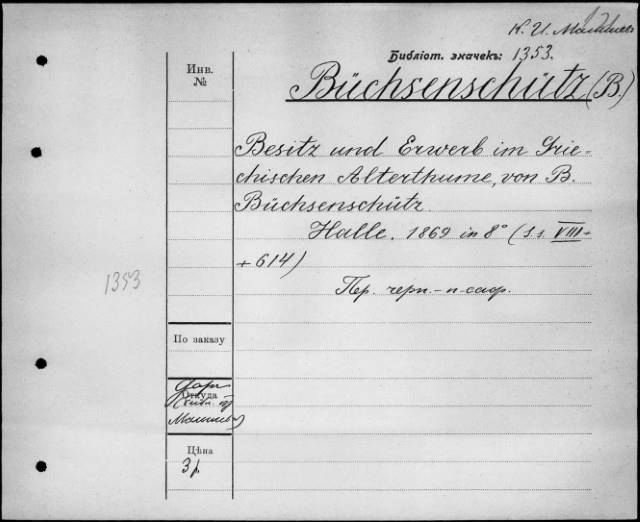 К. И.
Библіот. значекъ: 1353.
Инв.
№
Büchsenschütz (B.)
Besitz und Erwerb im Grie-
chischen Alterthume, von B.
Büchsenschütz
Halle. 1869 in 8° (S.s. VIII+
+614)
1353
Пер. черн.-п-сафр.
По заказу
Откуда
Цѣна
3 р.